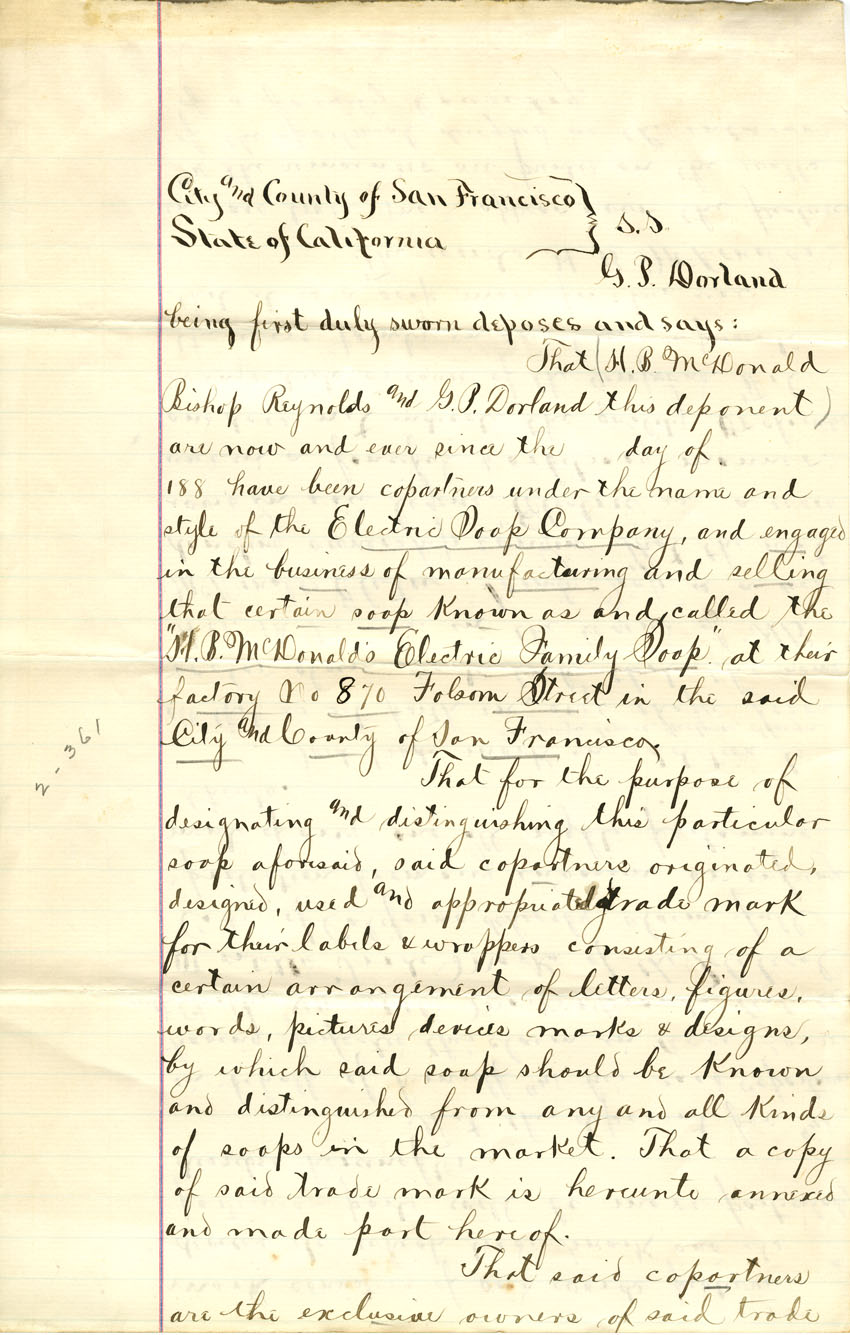 City and County of San Francisco } S.S.
State of California
G. P. Dorland
being first duly sworn deposes and says:
That (H. B. McDonald
Bishop Reynolds and G. P. Dorland this deponent)
are now and ever since the day of
188 have been copartners under the name and
style of the Electric Soap Company, and engaged
in the business of manufacturing and selling
that certain soap known as and called the
"H. B. McDonald's Electric Family Soap." at their
factory No 870 Folsom Street in the said
City and County of San Francisco.
That for the purpose of
designating and distinguishing this particular
soap aforesaid, said copartners originated,
designed, used and appropriated a trade mark
for their labels & wrappers consisting of a
certain arrangement of letters, figures,
words, pictures devices marks & designs,
by which said soap should be known
and distinguished from any and all kinds
of soaps in the market. That a copy
of said trade mark is hereunto annexed
and made part hereof.
That said copartners
are the exclusive owners of said trade
2-361